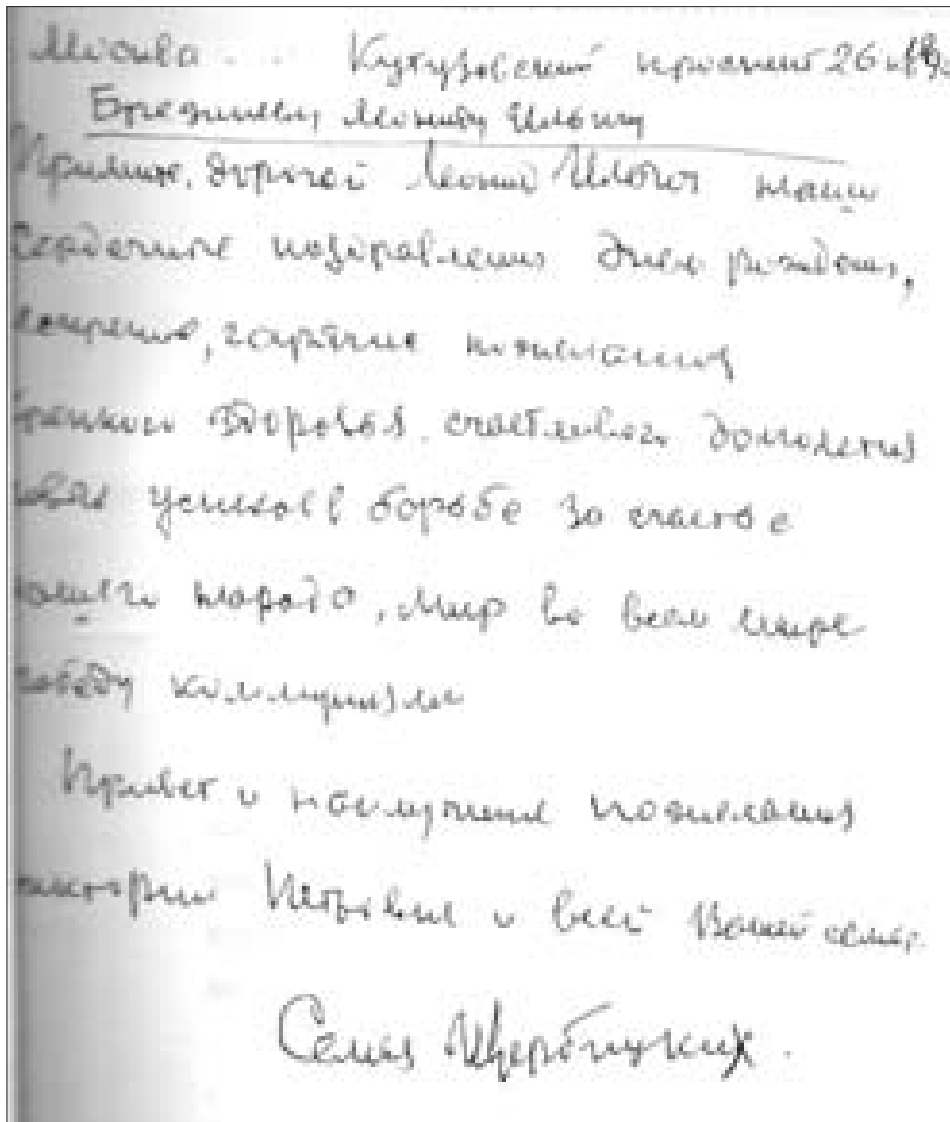 Москва Кутузовский проспект 26
Брежневу Леониду Ильичу
Примите, дорогой Леонид Ильич наши
сердечные поздравления днем рождения,
искренние, горячие пожелания
крепкого здоровья, счастливого долголетия
новых успехов в борьбе за счастье
нашего народа, мир во всем мире
победу коммунизма
Привет и наилучшие пожелания
Виктории Петровне и всей Вашей семье
Семья Щербицких.